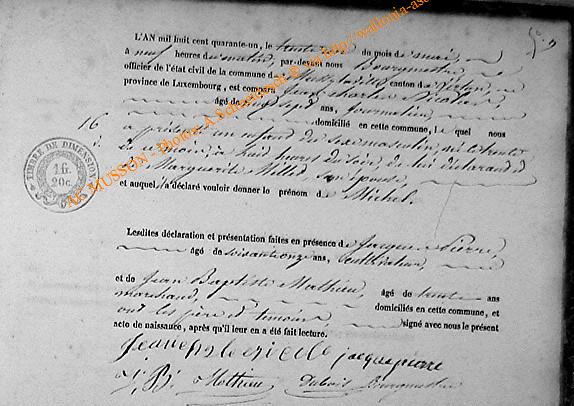 L'AN mil huit cent quarante-un, le trente du mois de mai,
à neuf heures du matin, par-devant nous Bourgmestre
officier de l'état civil de la commune de Mussy-la-Ville canton de Virton,
province de Luxembourg, est comparu Jean Charles Nicolas,
âgé de sept ans, journalier,
domicilié en cette commune, lequel nous
16
a présenté un enfant du sexe masculin, né le trente
à huit heures du soir, de lui déclarant
Marguerite son épouse,
et auquel il a déclaré vouloir donner le prénom de Michel.
TIMBRE DE DIMENSION
16.
20c.
Lesdites déclaration et présentation faites en présence de Jacques Pierre,
âgé de soixante onze ans, Cultivateur,
et de Jean Baptiste Mathieu, âgé de trente ans
marchand, domiciliés en cette commune,
ont les père et témoins, signé avec nous le présent
acte de naissance, après qu'il leur en a été fait lecture.
jacque pierre
J. B. Mathieu Dubois Bourgmestre
Ac MUSSON - Photos A.Schmickrath © for http://wallonia-as